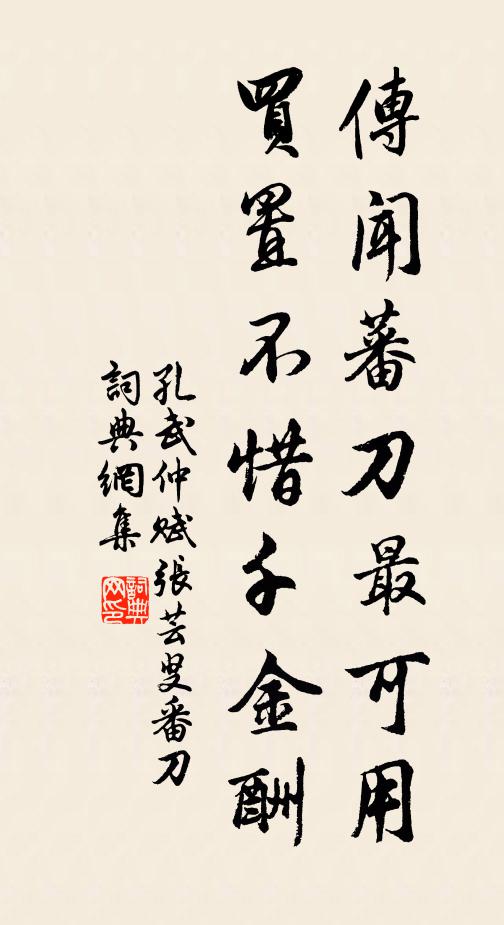 傳聞蕃刀最可用
買置不惜千金酬
孔武仲賦張芸叟番刀
詞典網集